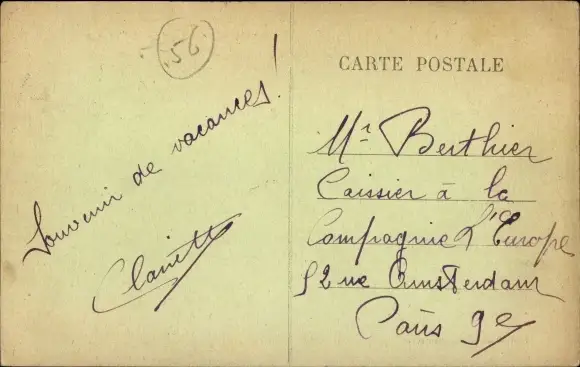 56
Souvenir de vacances!
CARTE POSTALE
Mr Berthier
Caissier à la
Compagnie l'Europe
rue Amsterdam
Paris 9e